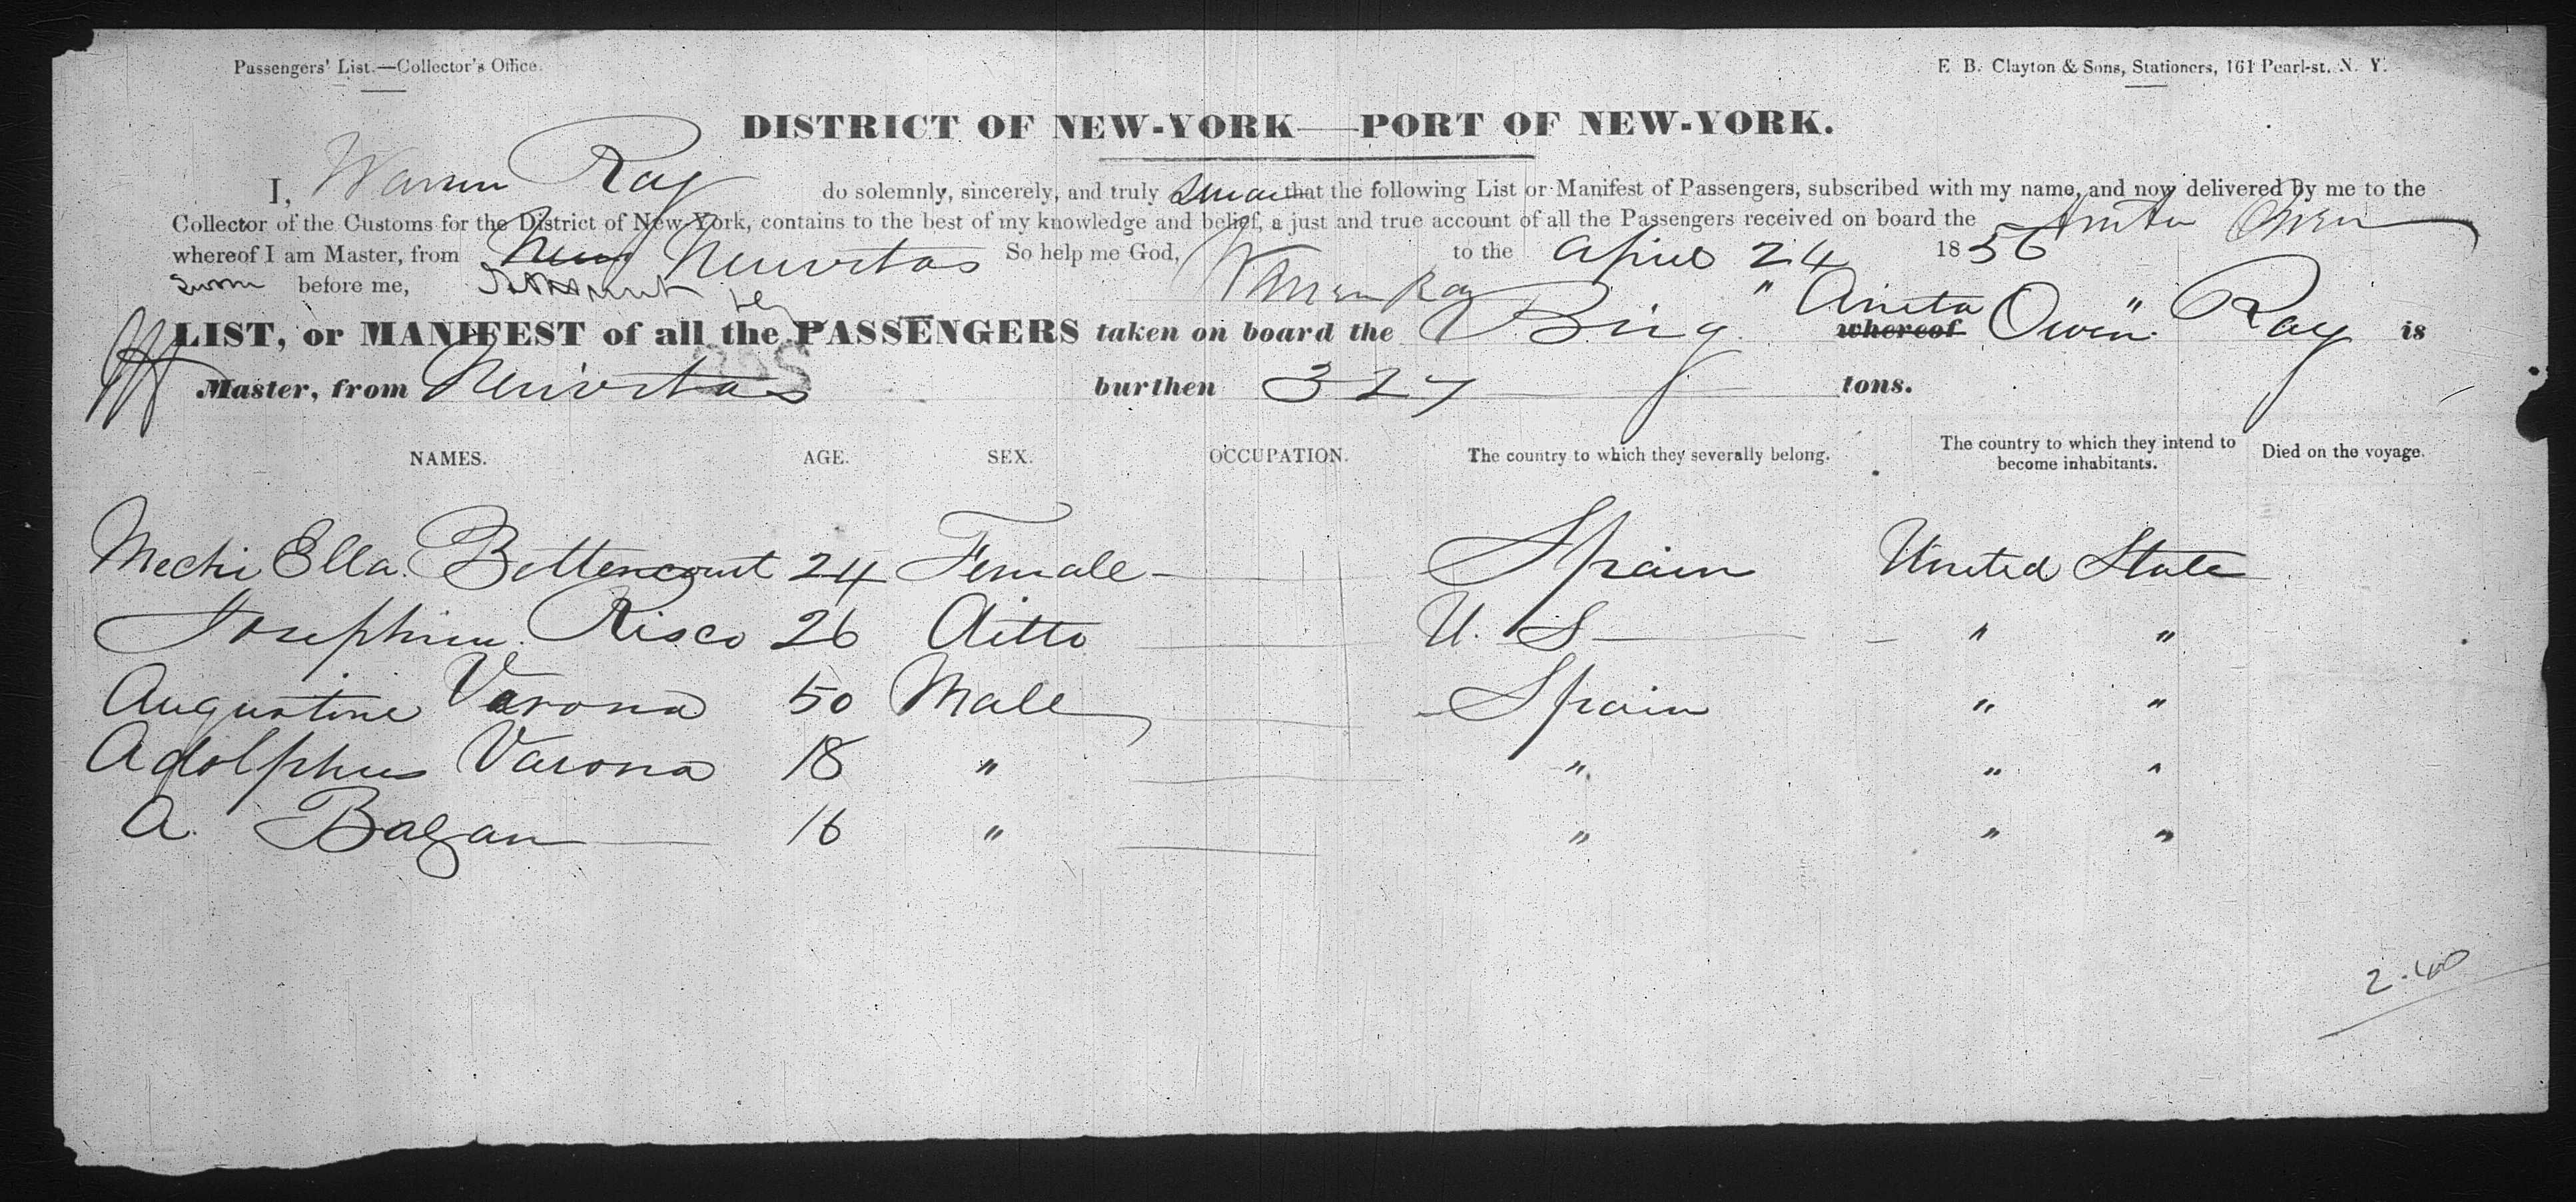 Passengers' List.—Collector's Office.
E. B. Clayton & Sons, Stationers, 161 Pearl-st. N. Y.
DISTRICT OF NEW-YORK—PORT OF NEW-YORK.
I, Warren Ray do solemnly, sincerely, and truly swear that the following List or Manifest of Passengers, subscribed with my name, and now delivered by me to the
Collector of the Customs for the District of New-York, contains to the best of my knowledge and belief, a just and true account of all the Passengers received on board the Anita Owen
whereof I am Master, from Nuevitas So help me God,
to the April 24 1856
Sworn before me, Warren Ray
LIST, or MANIFEST of all the PASSENGERS taken on board the Brig " Anita whereof Owen " Ray is
Master, from Nuevitas burthen 327 tons.
NAMES. AGE. SEX. OCCUPATION. The country to which they severally belong. The country to which they intend to become inhabitants. Died on the voyage.
Mechi Ella Bettencourt 24 Female Spain United State
Josephine Risco 26 ditto U. S " "
Augustine Varona 50 Male Spain " "
Adolphus Varona 18 " " " "
A. Bagan 16 " " " "
2.40